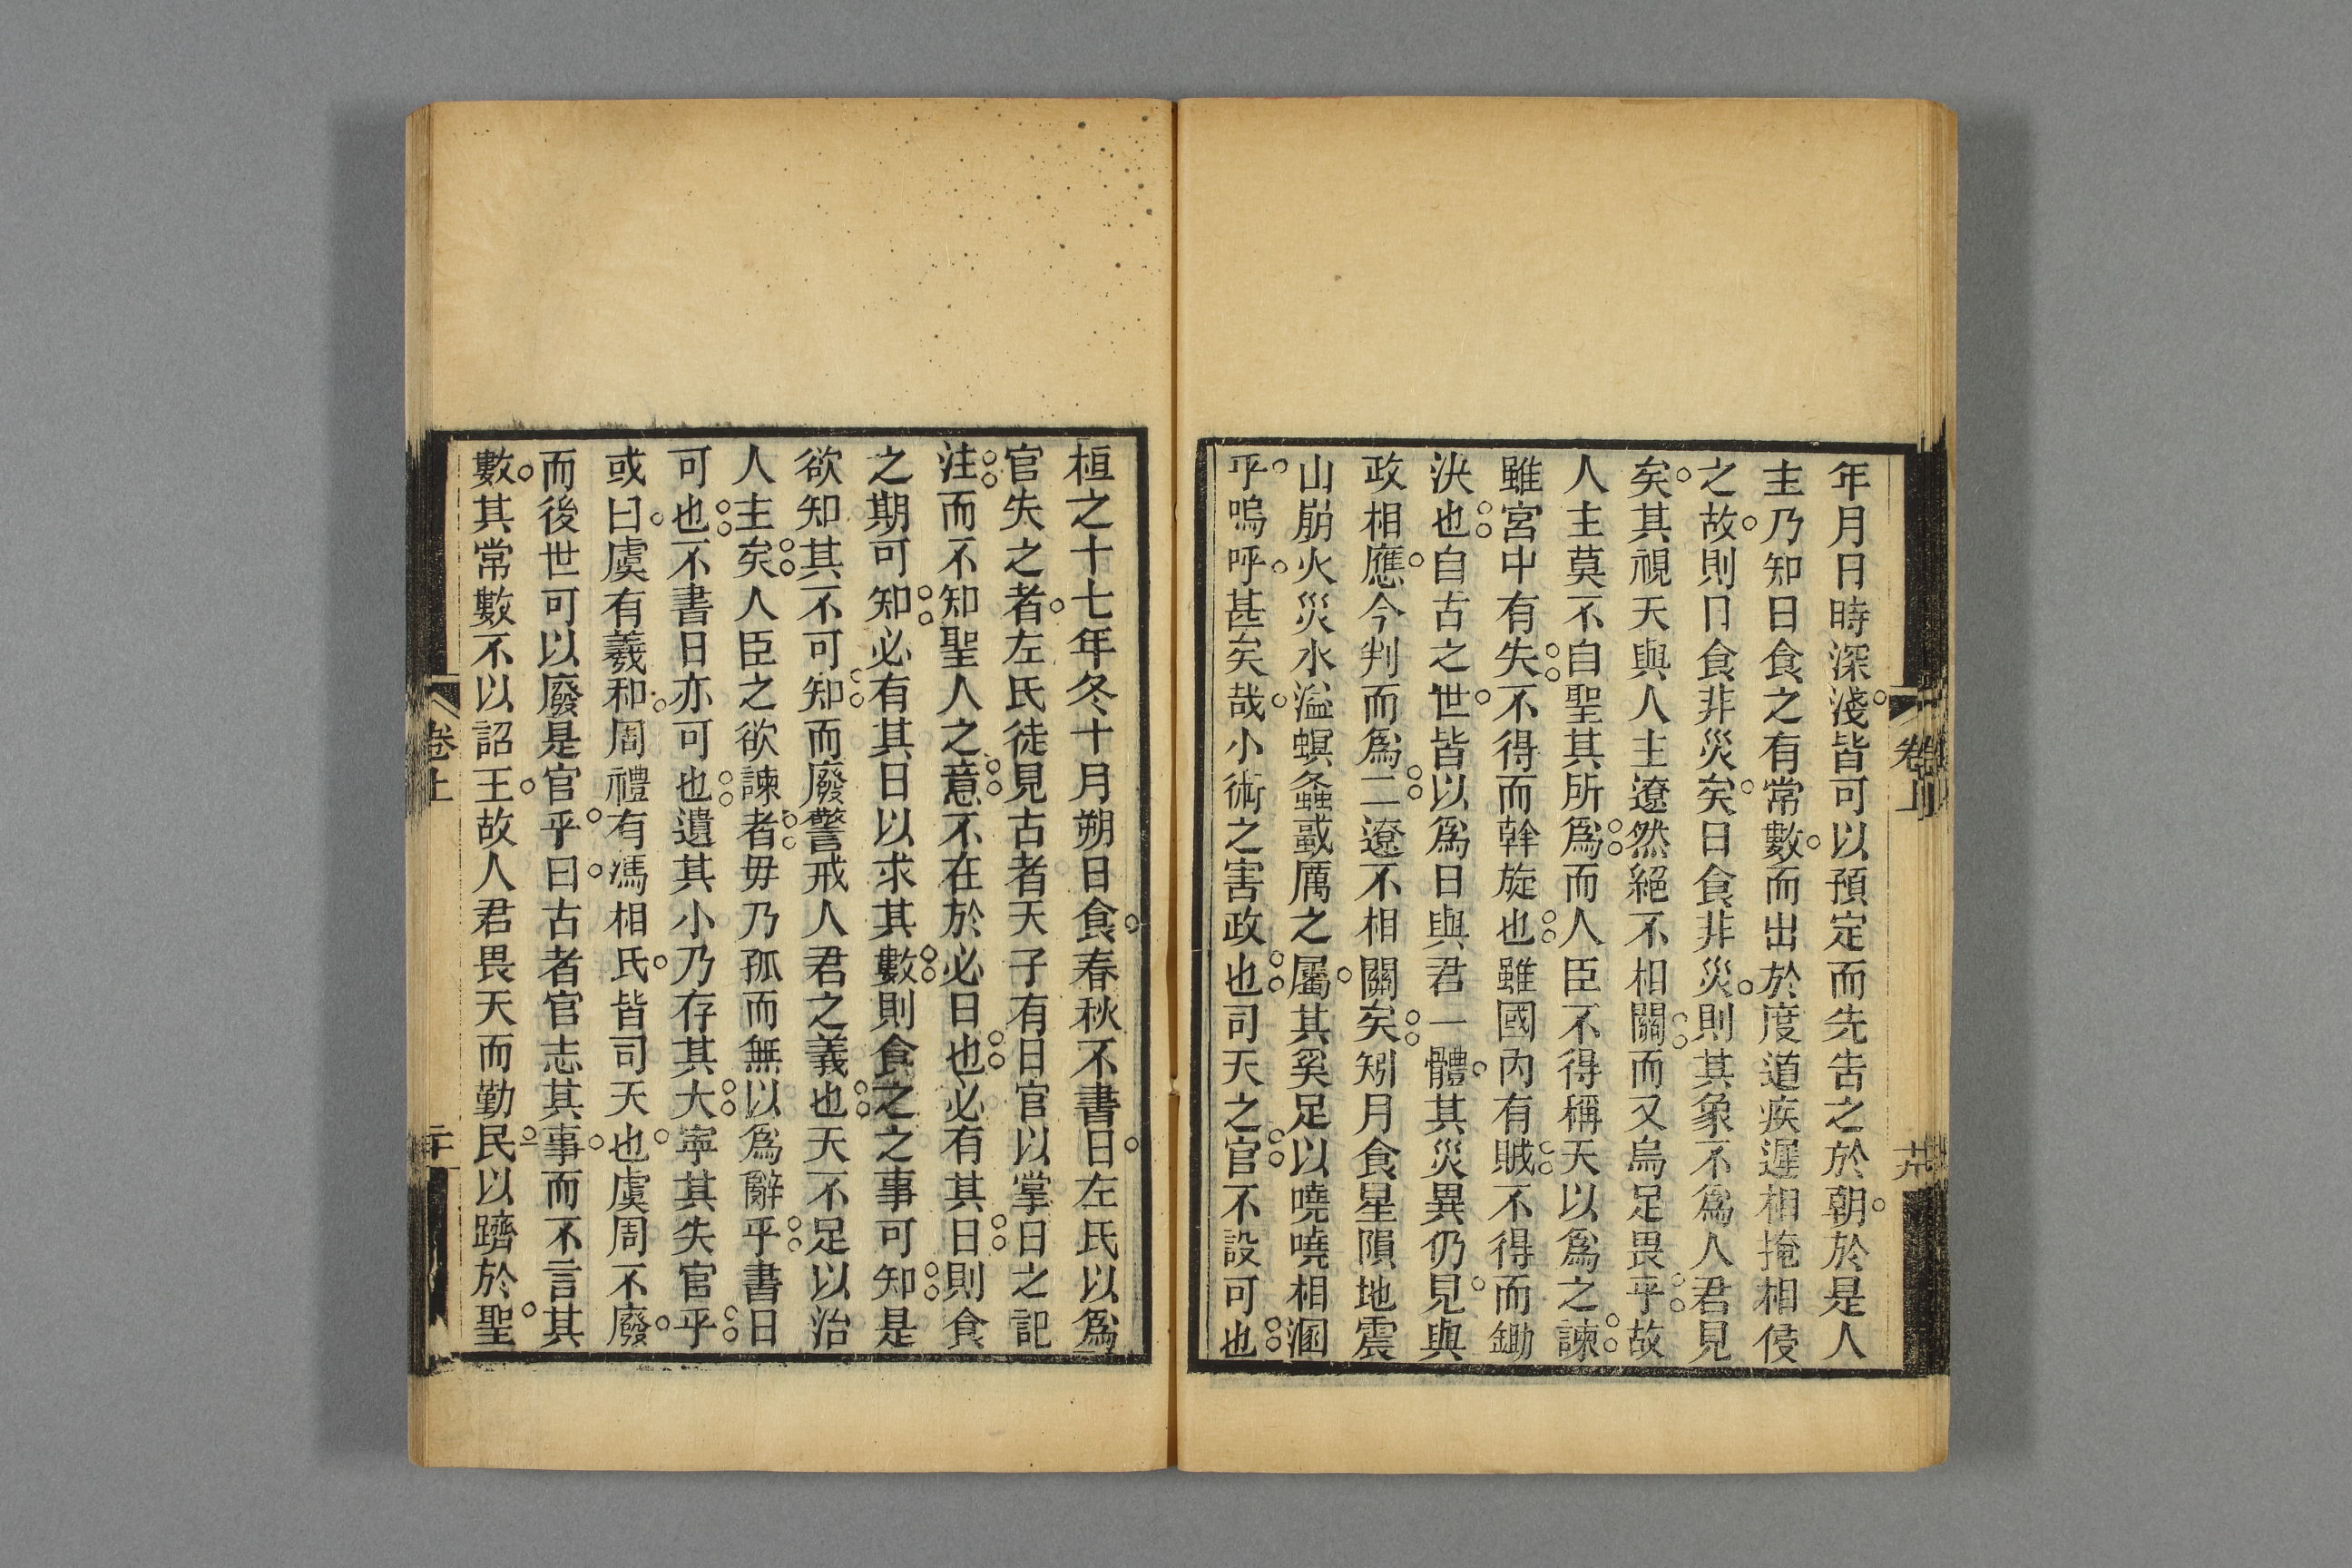 年月日時深淺皆可以預定而先吿之於朝於是人
主乃知日食之有常數而出於度道疾遲相掩相侵
之故則日食非災矣日食非災則其象不爲人君見
矣其視天與人主遼然絕不相關而又烏足畏乎故
人主莫不自聖其所爲而人臣不得稱天以爲之諫
雖宮中有失不得而幹旋也雖國內有賊不得而鋤
決也自古之世皆以爲日與君一體其災異仍見與
政相應今判而爲二遼不相關矣矧月食星隕地震
山崩火災水溢螟螽蜚厲之屬其奚足以嘵嘵相溷
乎嗚呼甚矣哉小術之害政也司天之官不設可也
卷上
桓之十七年冬十月朔日食春秋不書日左氏以爲
官失之者左氏徒見古者天子有日官以掌日之記
注而不知聖人之意不在於必日也必有其日則食
之期可知必有其日以求其數則食之之事可知是
欲知其不可知而廢警戒人君之義也天不足以治
人主矣人臣之欲諫者毋乃孤而無以爲辭乎書日
可也不書日亦可也遺其小乃存其大寧其失官乎
或曰虞有羲和周禮有馮相氏皆司天也虞周不廢
而後世可以廢是官乎曰古者官志其事而不言其
數其常數不以詔王故人君畏天而勤民以躋於聖
卷上
二十